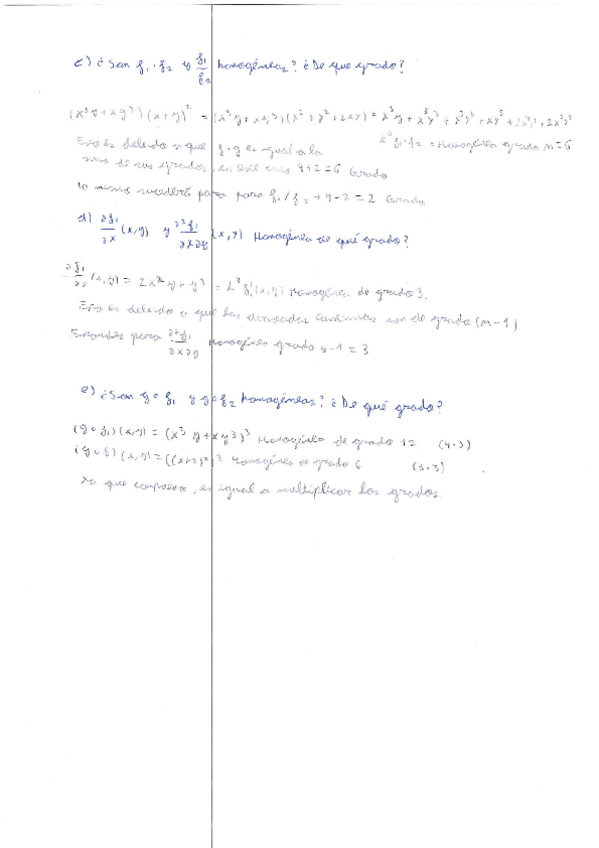 c) ¿Son f₁·f₂ y f₁/f₂ homogéneas? ¿De que grado?
(x³y+xy³)(x+y)² = (x³y+xy³)(x²+y²+2xy) =
Esto es debido a que f·g es igual a la
suma de sus grados, en este caso 4+2=6 Grado
f₁·f₂ = Homogénea grado n=6
Lo mismo sucederá para para f₁/f₂ 4-2=2 Grado
d) ∂f₁/∂x (x,y) y ∂²f₁/∂x∂y (x,y) Homogénea de qué grado?
∂f₁/∂x (x,y) = Homogénea de grado 3.
Esto es debido a que las derivadas son de grado (n-1)
Entonces para ∂²f₁/∂x∂y Homogénea grado 4-1=3
e) ¿Son g∘f₁ y g∘f₂ homogéneas? ¿De qué grado?
(g∘f₁)(x,y) = (x³y+xy³)³ Homogénea de grado 12 (4·3)
Homogénea de grado 6
Ya que es igual a multiplicar los grados.